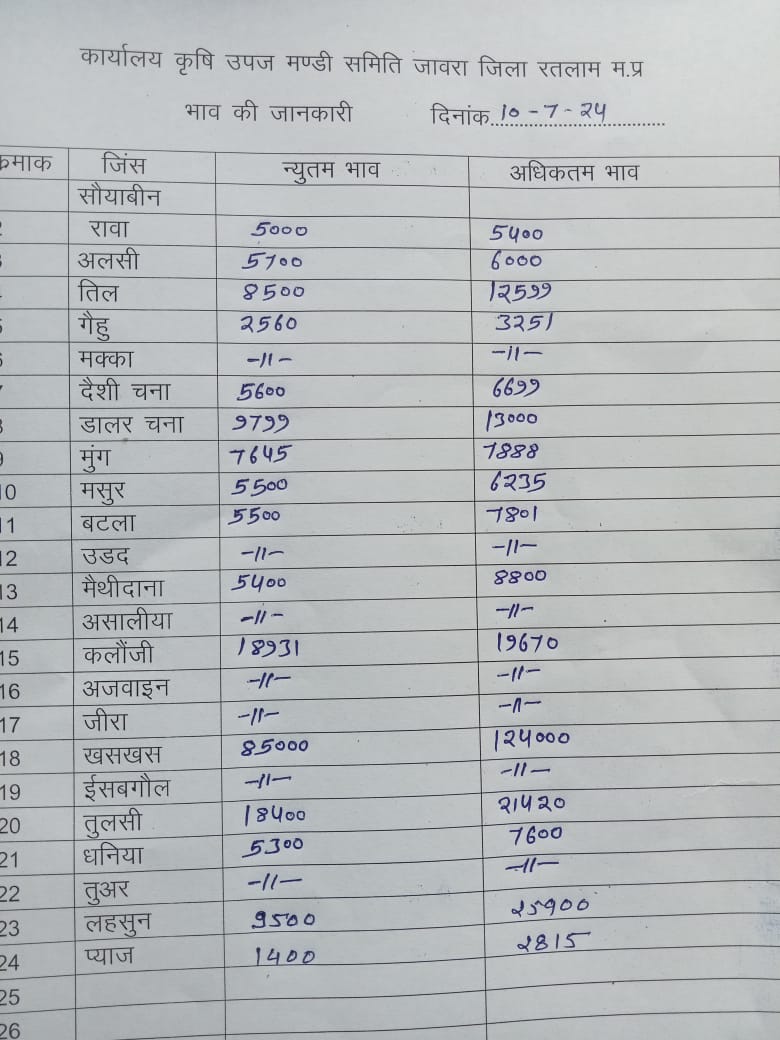 कार्यालय कृषि उपज मण्डी समिति जावरा जिला रतलाम म.प्र
भाव की जानकारी दिनांक 10-7-24
क्रमाक जिंस न्युतम भाव अधिकतम भाव
सौयाबीन
2 रावा 5000 5400
3 अलसी 5700 6000
4 तिल 8500 12599
5 गैहु 2560 3251
6 मक्का -11- -11-
7 दैशी चना 5600 6699
8 डालर चना 9799 13000
9 मुंग 7645 7888
10 मसुर 5500 6235
11 बटला 5500 7801
12 उडद -11- -11-
13 मैथीदाना 5400 8800
14 असालीया -11- -11-
15 कलौंजी 18931 19670
16 अजवाइन -11- -11-
17 जीरा -11- -11-
18 खसखस 85000 124000
19 ईसबगौल -11- -11-
20 तुलसी 18400 21420
21 धनिया 5300 7600
22 तुअर -11- -11-
23 लहसुन 9500 25900
24 प्याज 1400 2815
25
26